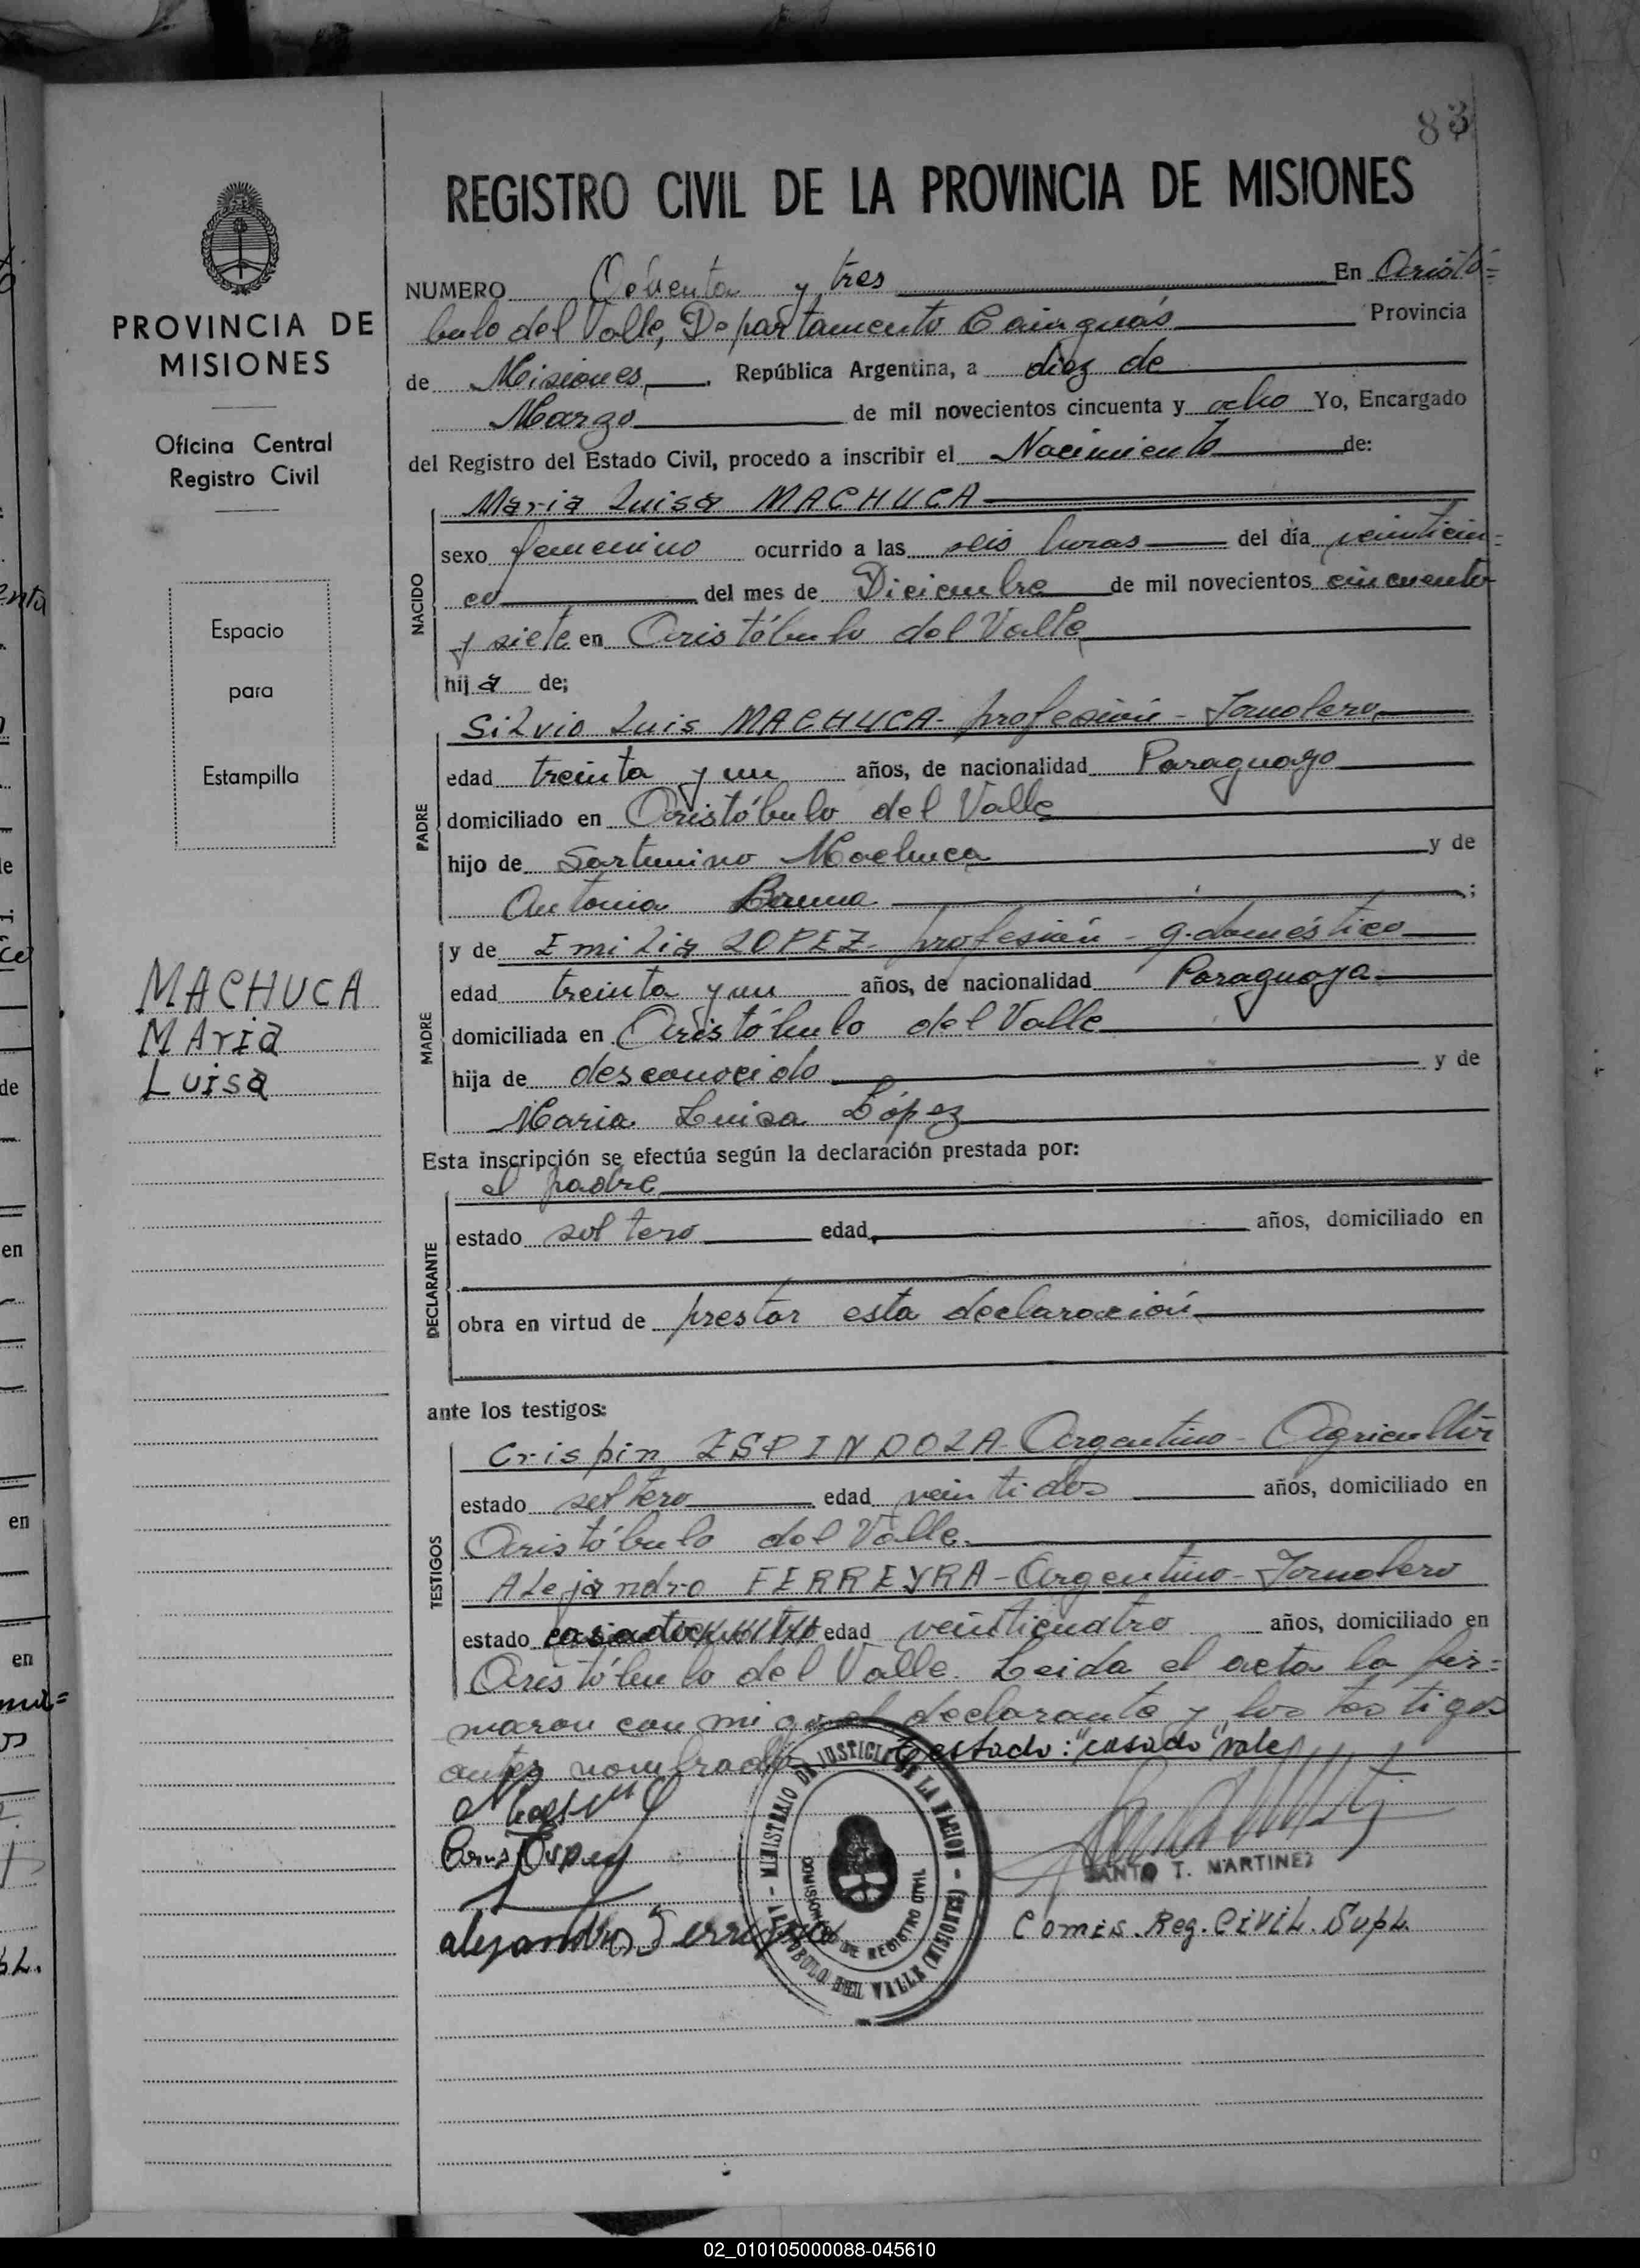 83
REGISTRO CIVIL DE LA PROVINCIA DE MISIONES
PROVINCIA DE
MISIONES
Oficina Central
Registro Civil
Espacio
para
Estampilla
MACHUCA
Maria
Luisa
NUMERO Ochenta y tres En Aristó=
bulo del Valle, Departamento Cainguás Provincia
de Misiones, República Argentina, a diez de
Marzo de mil novecientos cincuenta y ocho Yo, Encargado
del Registro del Estado Civil, procedo a inscribir el Nacimiento de:
NACIDO
Maria Luisa MACHUCA
sexo femenino ocurrido a las seis horas del día veinticin=
co del mes de Diciembre de mil novecientos cincuenta
y siete en Aristóbulo del Valle
hija de;
PADRE
Silvio Luis MACHUCA- profesión - Jornalero
edad treinta y un años, de nacionalidad Paraguayo
domiciliado en Aristóbulo del Valle
hijo de Sarturnino Machuca y de
Antonia ;
MADRE
y de Emilia LOPEZ- profesión - q. doméstico
edad treinta y un años, de nacionalidad Paraguaya
domiciliada en Aristóbulo del Valle
hija de desconocido y de
Maria Luisa López
Esta inscripción se efectúa según la declaración prestada por:
DECLARANTE
el padre
estado soltero edad, años, domiciliado en
obra en virtud de prestar esta declaración
ante los testigos:
TESTIGOS
Crispin ESPINDOLA- Argentino - Agricultor
estado soltero edad veintidos años, domiciliado en
Aristóbulo del Valle.
Alejandro FERREYRA - Argentino - Jornalero
estado casado edad veinticuatro años, domiciliado en
Aristóbulo del Valle. Leida el acta la fir=
maron con migo el declarante y los testigos
antes nombrados estado: "casado" vale
alejandro Ferreyra
MINISTERIO DE JUSTICIA DE LA NACION
COMISIONADO DE REGISTRO CIVIL
ARISTOBULO DEL VALLE (MISIONES)
SANTO T. MARTINEZ
Comis. Reg. Civil. Supl.
en
en
en
de
02_010105000088-045610